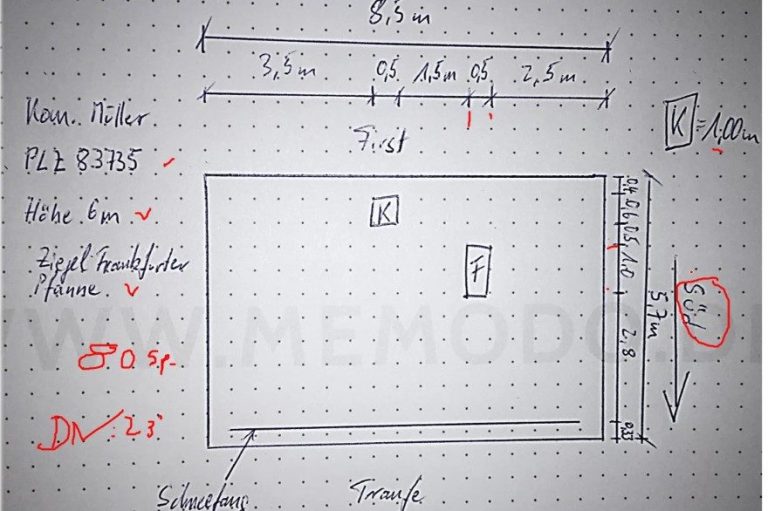 8,5 m
3,5 m 0,5 1,5 m 0,5 2,5 m
Kom. Müller
PLZ 83735
Höhe 6m
Ziegel Frankfurter
Pfanne
80 Sp.
DN 23°
First
K = 1,00 m
K
F
0,4 0,6 0,5 1,0 2,8 0,35
5,7 m
Süd
WWW.MEMODO.D
Schneefang
Traufe